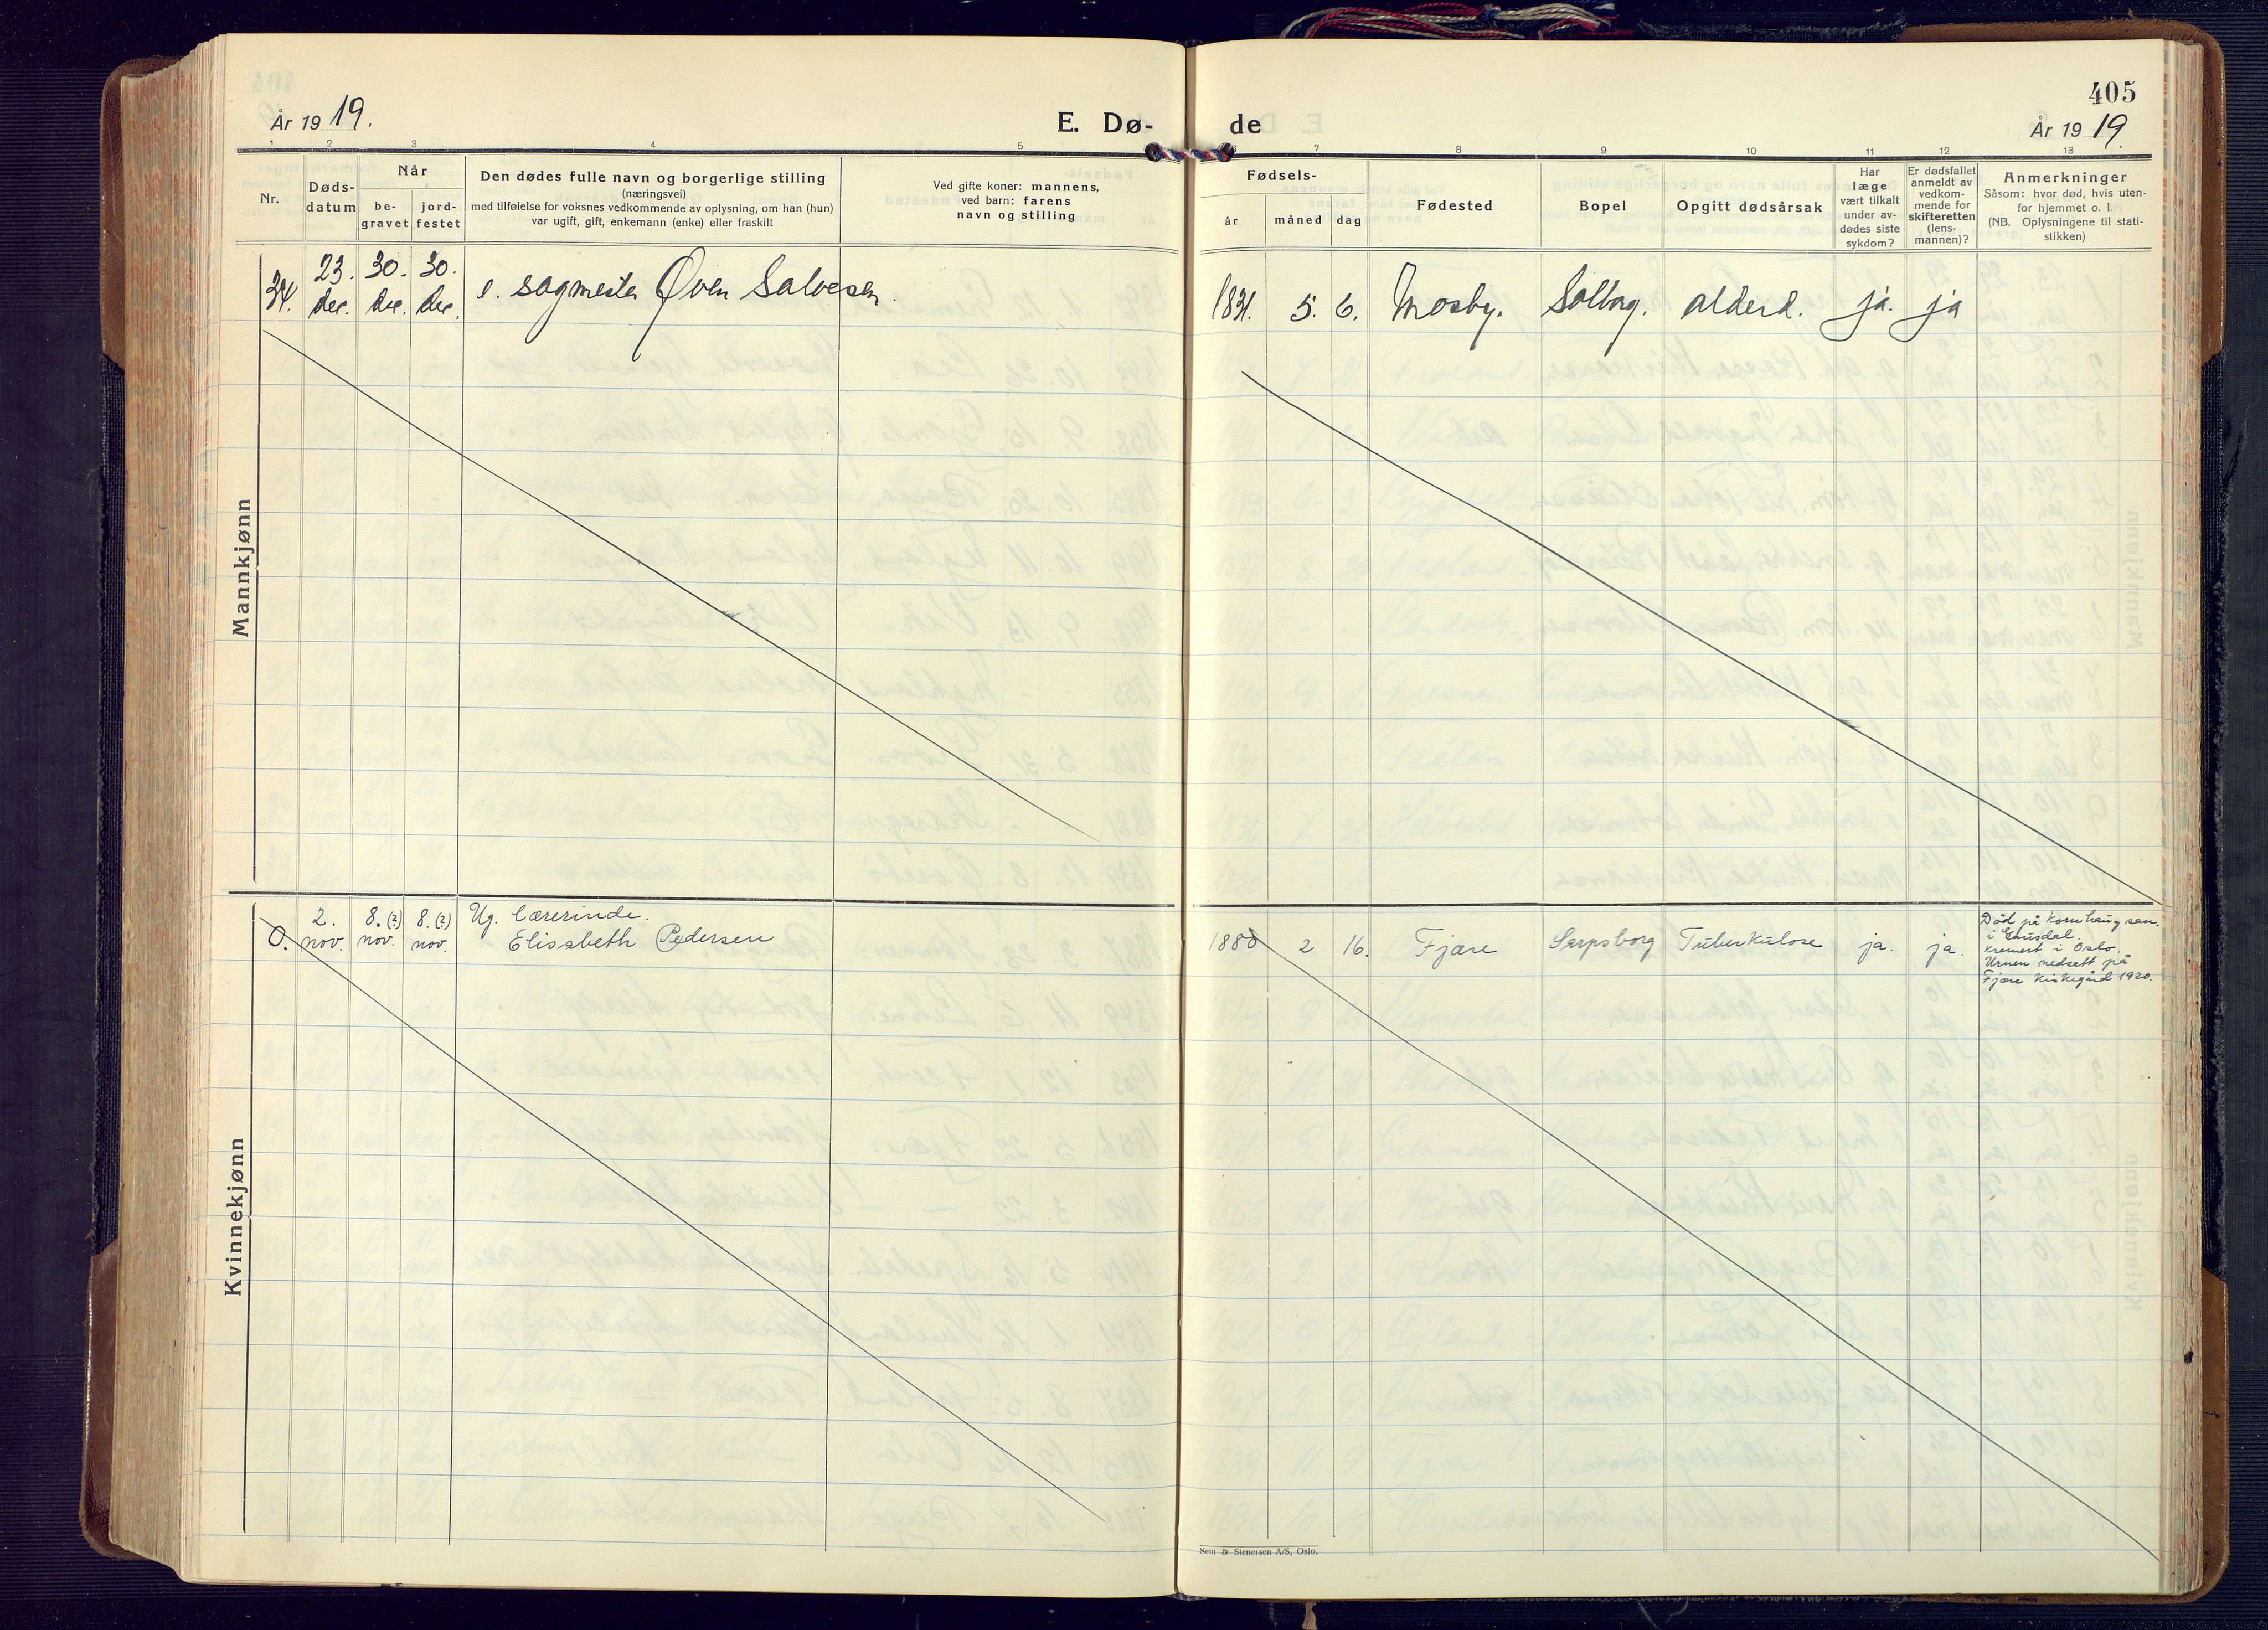 405
År 19 19.
E. Dø-
de
År 19 19.
1 2 3 4 5 6 7 8 9 10 11 12 13
Nr.
Døds-
datum
Når
be-
gravet
jord-
festet
Den dødes fulle navn og borgerlige stilling
(næringsvei)
med tilføielse for voksnes vedkommende av oplysning, om han (hun)
var ugift, gift, enkemann (enke) eller fraskilt
Ved gifte koner: mannens,
ved barn: farens
navn og stilling
Fødsels-
år måned dag
Fødested
Bopel
Opgitt dødsårsak
Har
læge
vært tilkalt
under av-
dødes siste
sykdom?
Er dødsfallet
anmeldt av
vedkom-
mende for
skifteretten
(lens-
mannen)?
Anmerkninger
Såsom: hvor død, hvis uten-
for hjemmet o. l.
(NB. Oplysningene til stati-
stikken)
Mannkjønn
34. 23. dec. 30. dec. 30. dec. e. sagmester Øven Salvesen. 1831. 5. 6. Mosby. Solborg. alderd. ja. ja
Kvinnekjønn
0. 2. nov. 8. (?) nov. 8. (?) nov. Ug. Lærerinde.
Elisabeth Pedersen 1880 2 16. Fjære Sarpsborg Tuberkulose ja. ja.
Død på Kornhaug san.
i Gausdal.
Kremert i Oslo.
Urnen nedsatt på
Fjære Kirkegård 1920.
Sem & Stenersen A/S, Oslo.